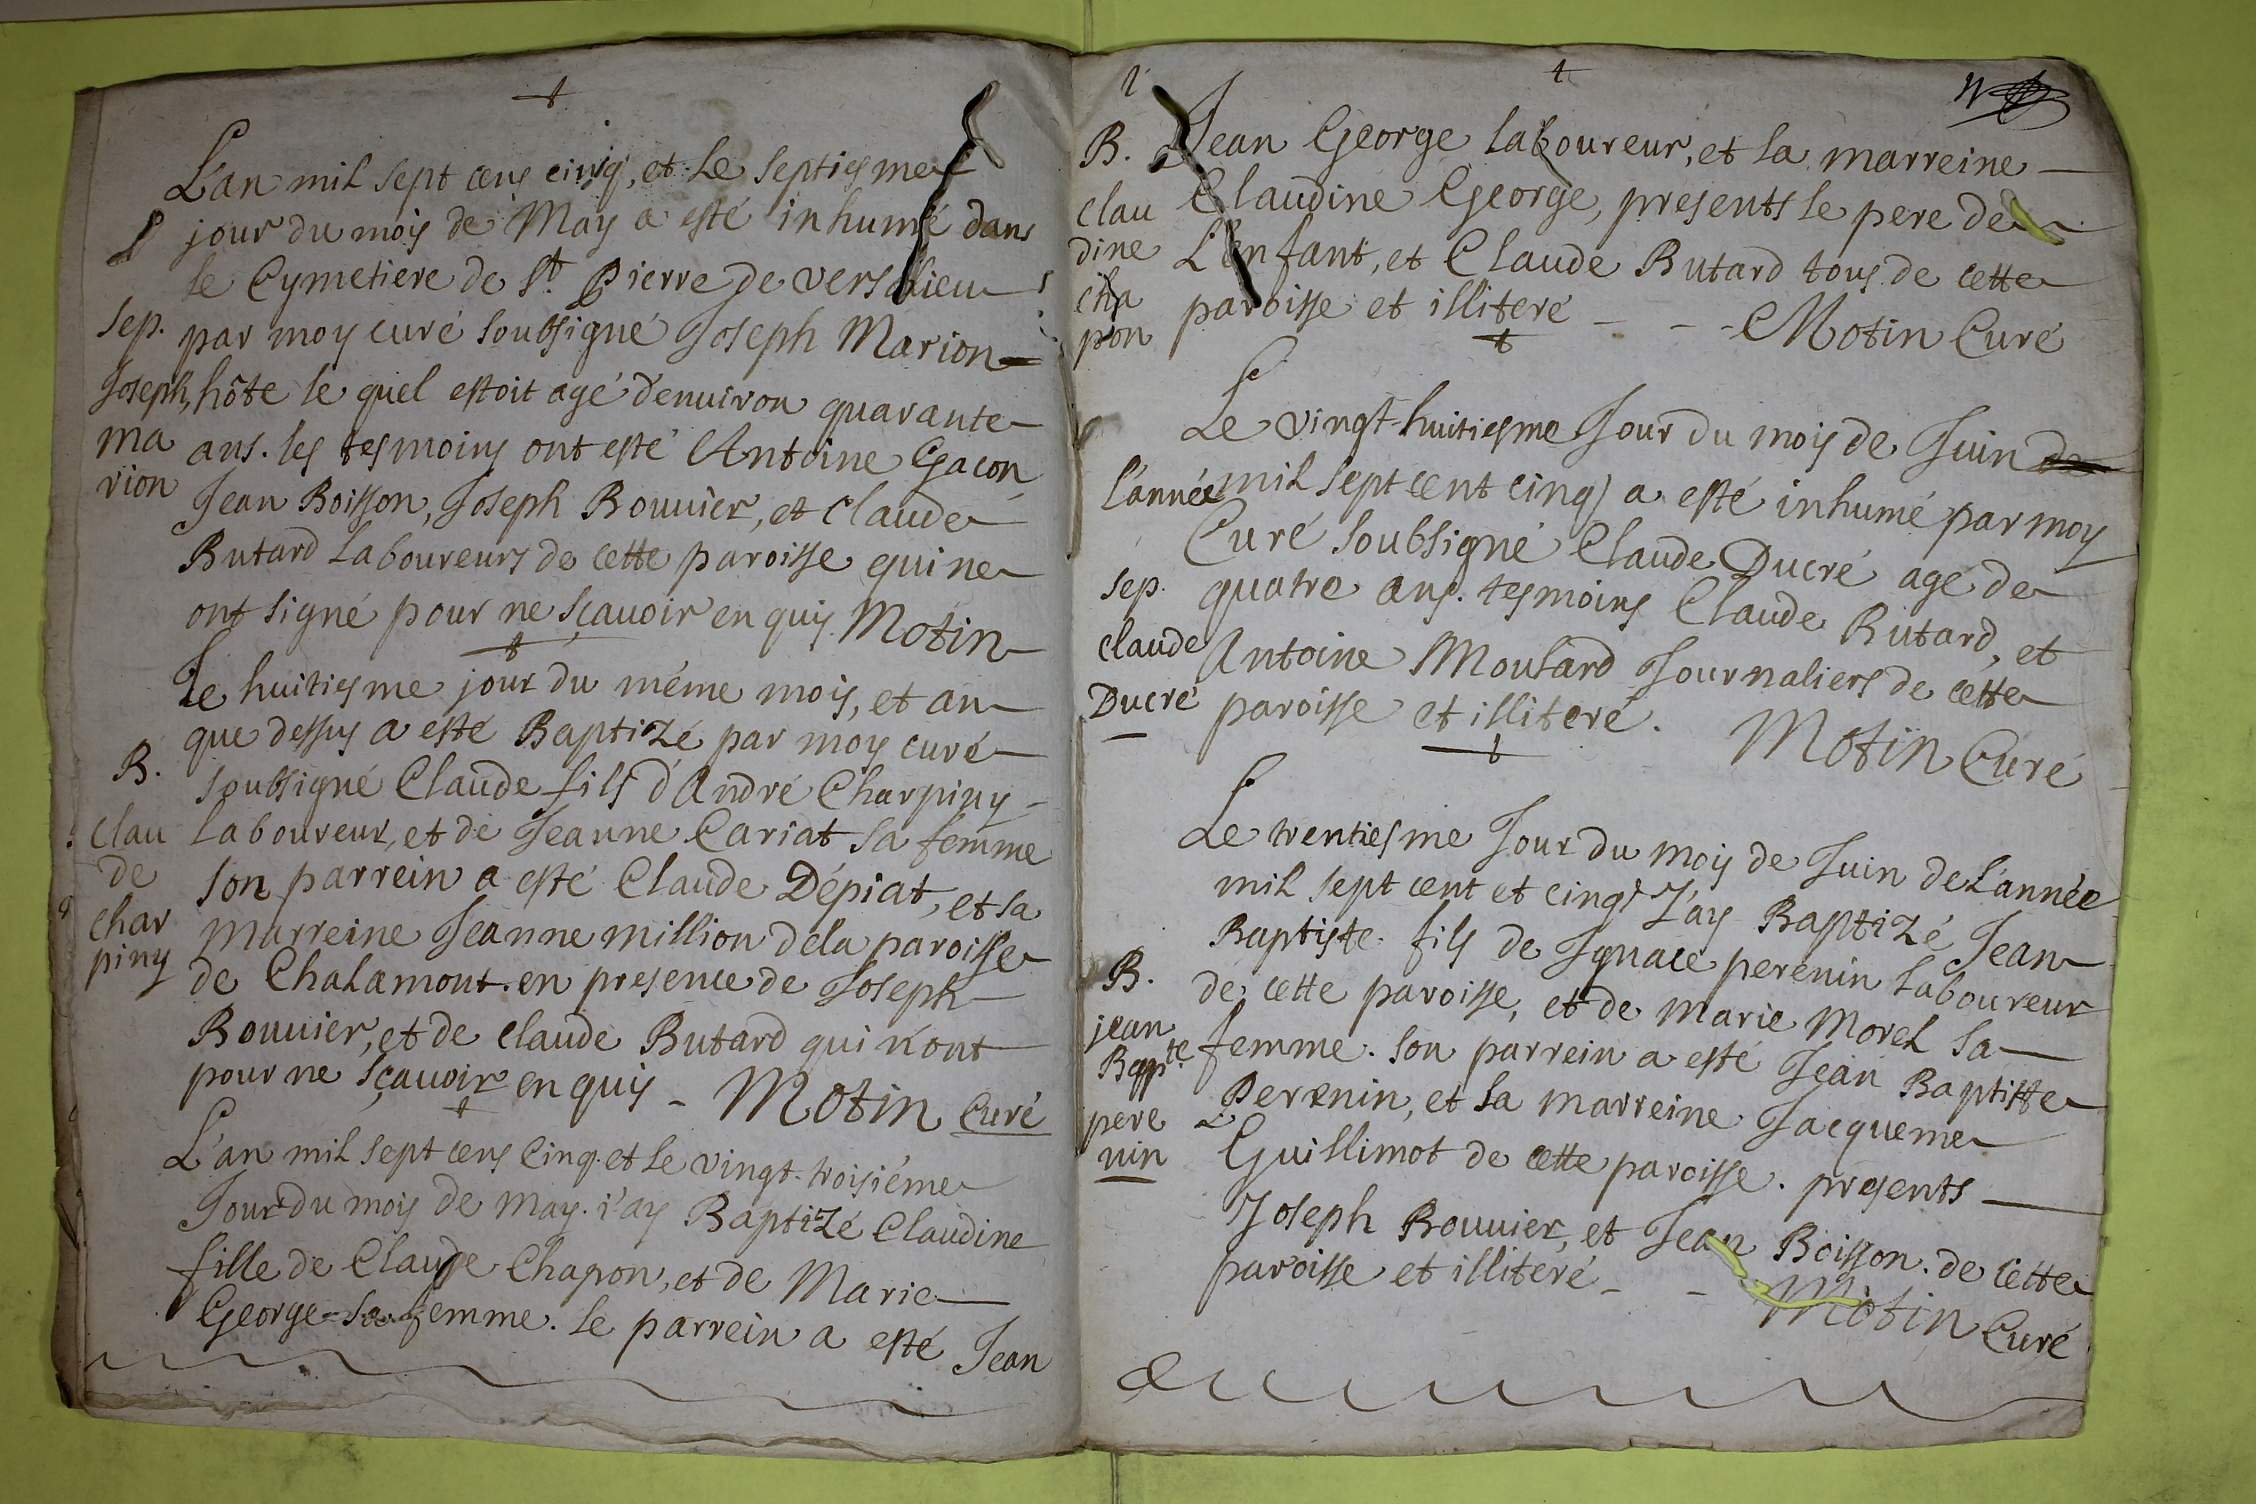 L'an mil sept cens cinq, et le septiesme
jour du mois de May a esté inhumé dans
le Cymetiere de St. Pierre de versalieu
sep. par moy curé soubsigné Joseph Marion
Joseph hôte le quel estoit agé d'enuiron quarante
ma ans. les tesmoins ont esté Antoine Gacon
rion Jean Boisson, Joseph Bouuier, et Claude
Butard Laboureurs de cette paroisse qui ne
ont signé pour ne sçauoir en quis Motin
Le huitiesme jour du méme mois, et an
que dessus a esté Baptizé par moy curé
B. soubsigné Claude fils d'André Charpiny
clau Laboureur, et de Jeanne Cariat sa femme
de son parrein a esté Claude Dépiat, et sa
char marreine Jeanne million de la paroisse
piny de Chalamont en presence de Joseph
Bouuier, et de claude Butard qui n'ont
pour ne sçauoir en quis - Motin Curé
L'an mil sept cens Cinq et le vingt-troisiéme
Jour du mois de may. i'ay Baptizé Claudine
fille de Claude Chapon, et de Marie
George sa femme. le parrein a esté Jean
B. Jean George laboureur, et la marreine
clau Claudine George, presents le pere de
dine L'enfant, et Claude Butard tous de cette
cha paroisse et illiteré - - - Motin Curé
pon
Le vingt-huitiesme Jour du mois de Juin
L'année mil sept cent cinq a esté inhumé par moy
Curé soubsigné Claude Ducré agé de
sep. quatre ans. tesmoins Claude Butard, et
claude Antoine Moulard Journaliers de cette
Ducré paroisse et illiteré. Motin Curé
Le trentiesme Jour du mois de Juin de L'année
mil sept cent et cinq J'ay Baptizé Jean
Baptiste fils de Ignace perenin Laboureur
B. de cette paroisse, et de marie Morel sa
jean femme. son parrein a esté Jean Baptiste
Bapte. Perenin, et la marreine Jacqueme
pere Guillimot de cette paroisse. presents
nin Joseph Bouuier, et Jean Boisson de cette
paroisse et illiteré - - Motin Curé